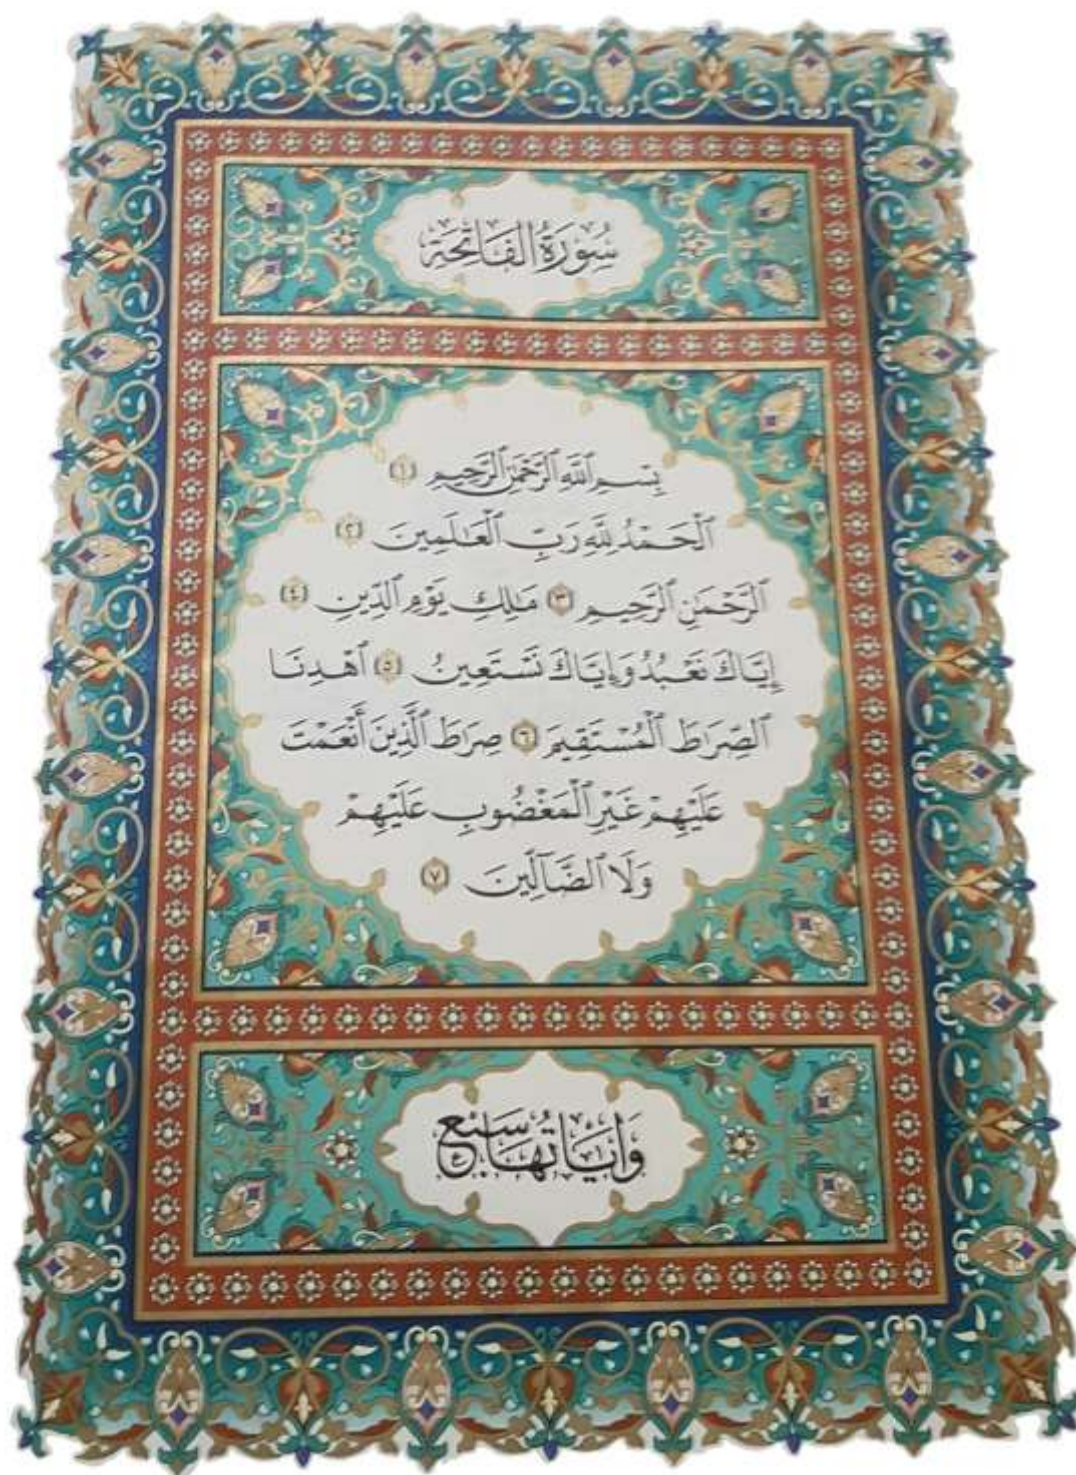 سُورَةُ الفَاتِحَة
بِسْمِ ٱللَّهِ ٱلرَّحْمَٰنِ ٱلرَّحِيمِ ١
ٱلْحَمْدُ لِلَّهِ رَبِّ ٱلْعَٰلَمِينَ ٢
ٱلرَّحْمَٰنِ ٱلرَّحِيمِ ٣ مَٰلِكِ يَوْمِ ٱلدِّينِ ٤
إِيَّاكَ نَعْبُدُ وَإِيَّاكَ نَسْتَعِينُ ٥ ٱهْدِنَا
ٱلصِّرَٰطَ ٱلْمُسْتَقِيمَ ٦ صِرَٰطَ ٱلَّذِينَ أَنْعَمْتَ
عَلَيْهِمْ غَيْرِ ٱلْمَغْضُوبِ عَلَيْهِمْ
وَلَا ٱلضَّآلِّينَ ٧
وَآيَاتُهَا سَبْعٌ